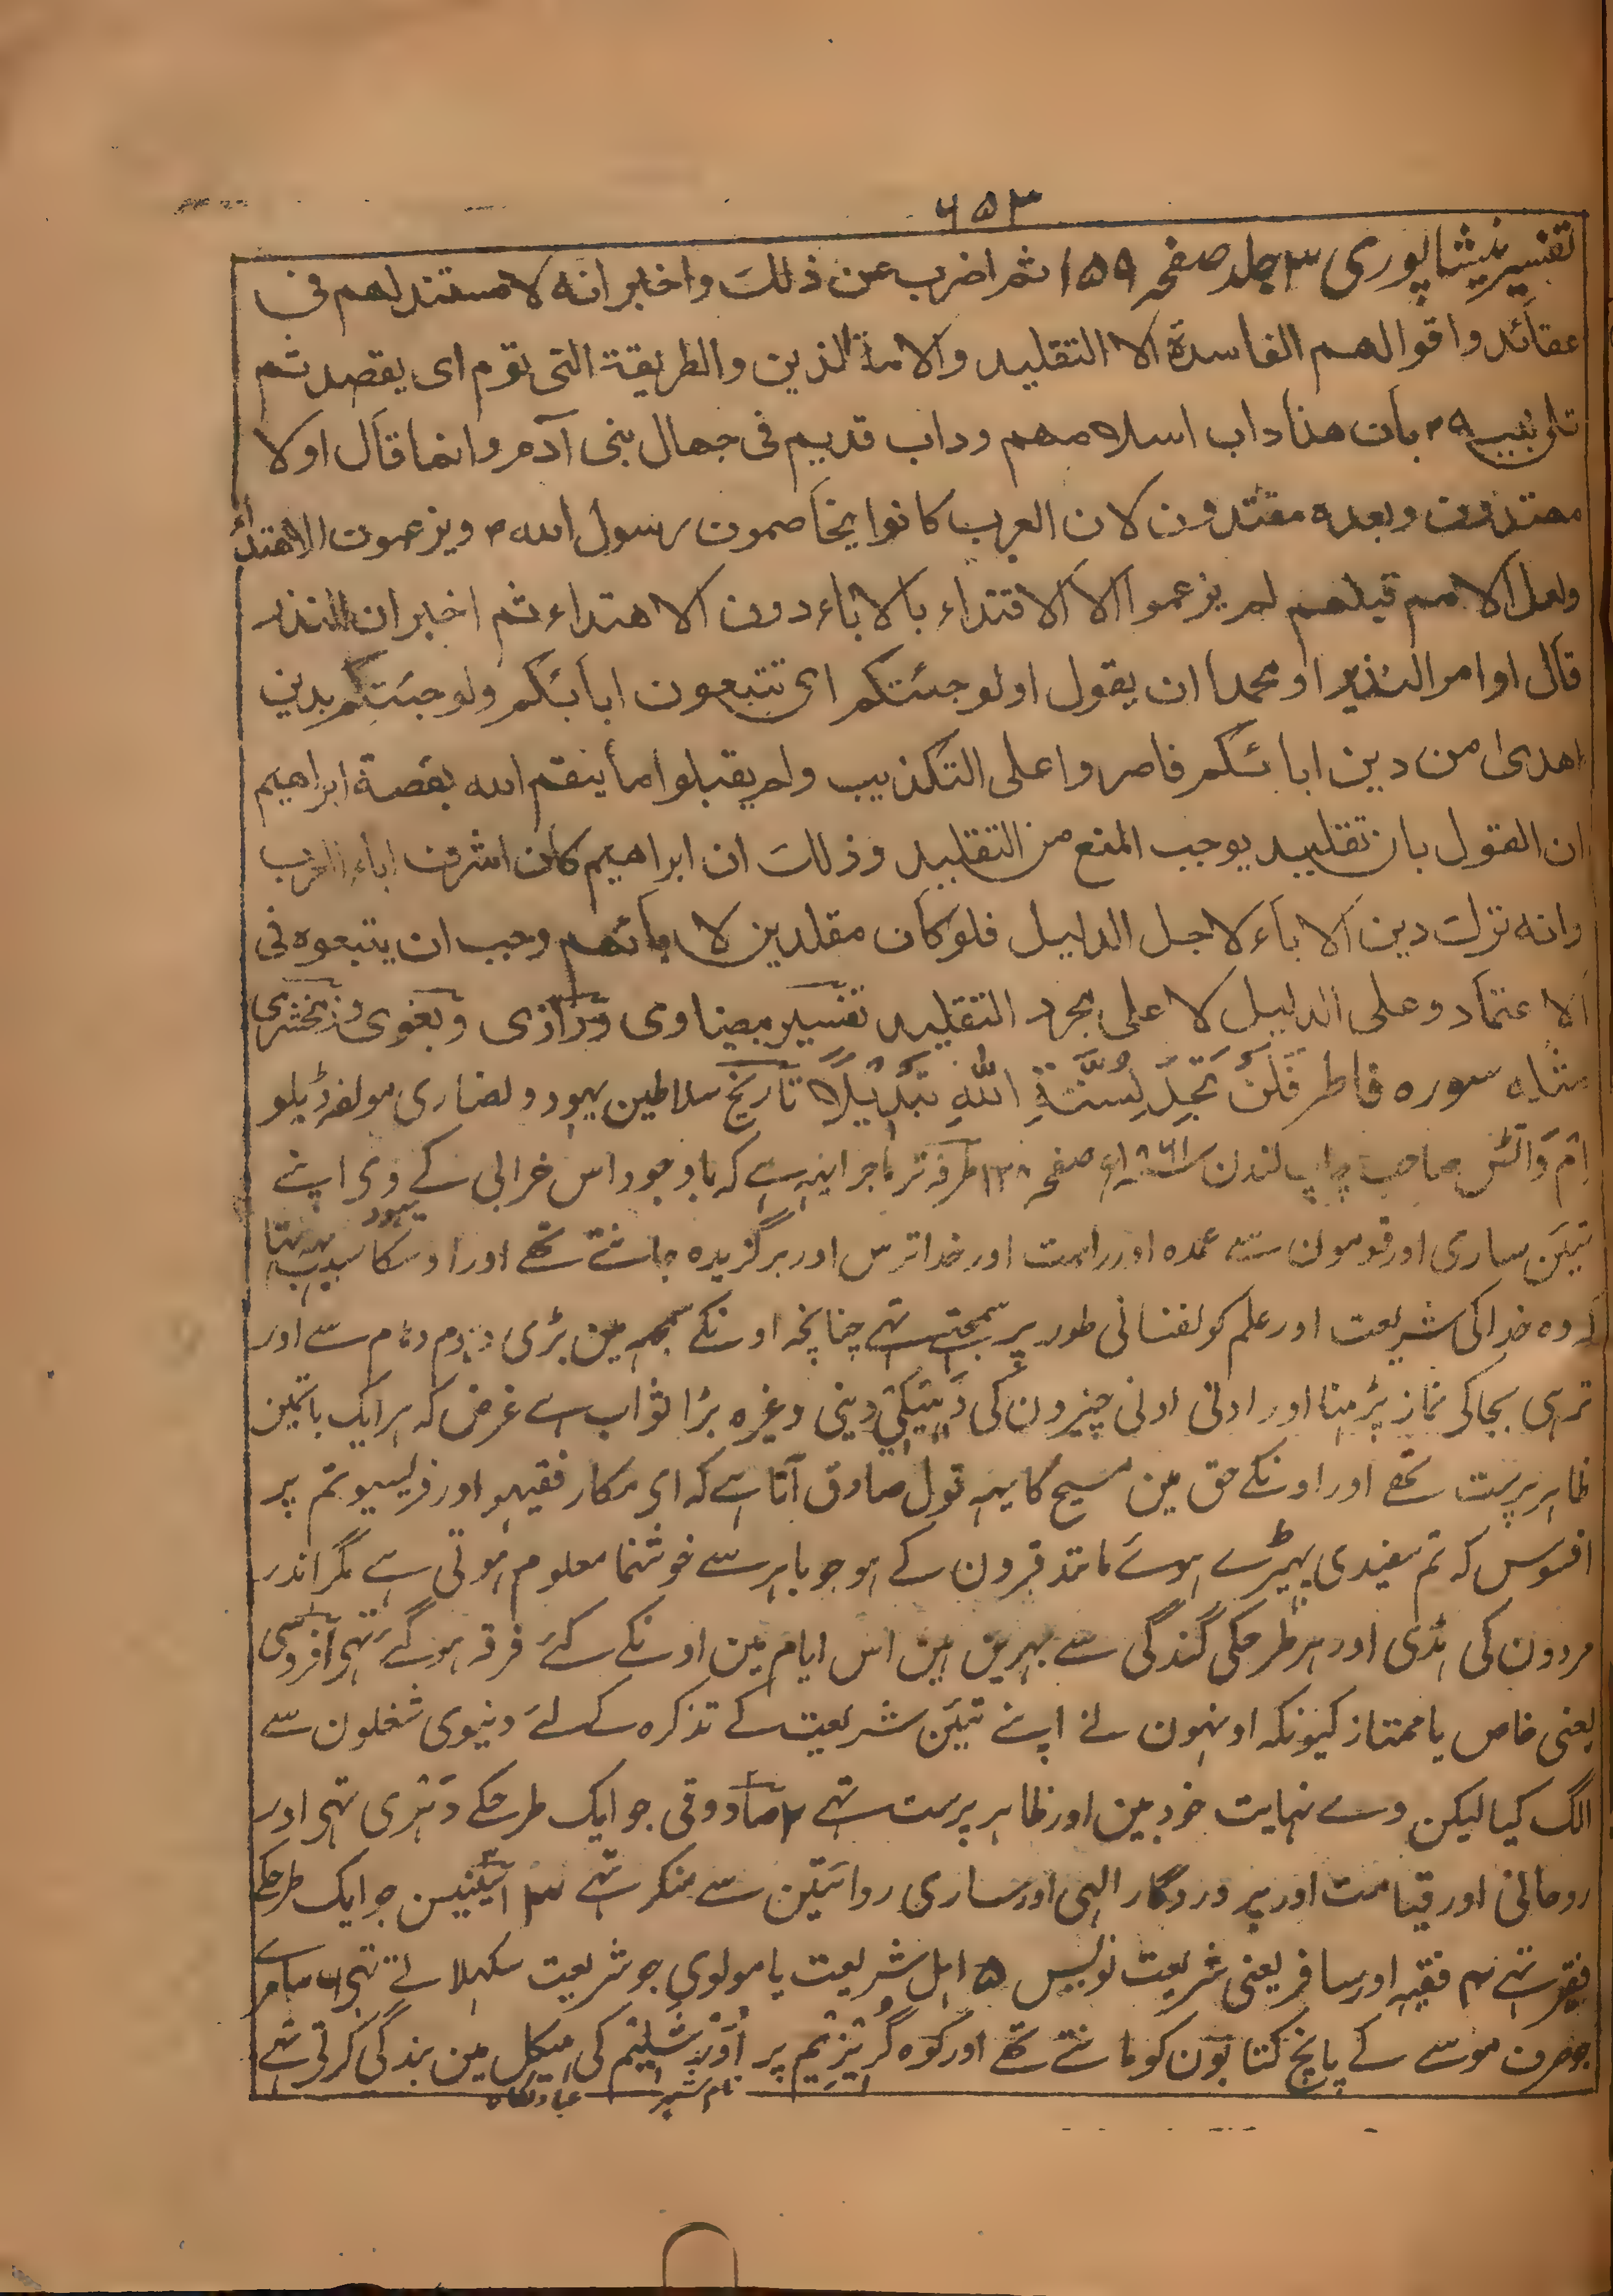 ۶۵۳
تفسیر نیشاپوری ۳ جلد صفحہ ۱۵۹ ثم اضرب عن ذلك واخبر انه لا مستند لهم فی
عقائد واقوالهم الفاسدة الا التقلید والامة الذین والطریقة التی تؤم ای یقصد ثم
بان هذا داب اسلافهم وداب قدیم فی جهال بنی آدم وانما قال اولا
مهتدون وبعده مقتدون لان العرب کانوا یخاصمون رسول الله م ویزعمون الاهتداء
ولعل الامم قبلهم لم یزعموا الا الاقتداء بالاباء دون الاهتداء ثم اخبر ان النذر
قال او امر النذیر او محمدا ان یقول اولو جئتکم ای تتبعون ابائکم ولو جئتکم بدین
اهدی من دین ابائکم فاصروا علی التکذیب ولم یقبلوا ما ینقم الله بقصة ابراهیم
ان القول بان تقلید یوجب المنع من التقلید وذلك ان ابراهیم کان اشرف اباء العرب
وانه ترك دین الاباء لاجل الدلیل فلو کان مقلدین لابائهم وجب ان یتبعوه فی
الاعتماد وعلی الدلیل لا علی مجرد التقلید تفسیر بیضاوی ورازی وبغوی وزمخشری
مثله سوره فاطر فَلَنْ تَجِدَ لِسُنَّةِ اللّٰهِ تَبْدِيْلًا تاریخ سلاطین یہود و نصاری مولفہ ڈبلو
اِم واٹس صاحب چاپ لندن ۱۸۶۱ء صفحہ ۱۳۸ طرفہ تر ماجرا یہہ ہے کہ باوجود اس خرابی کے وی اپنے
تیئن ساری اور قومون سے عمدہ اور راست اور خدا ترس اور برگزیدہ جانتے تھے اور اوسکا سبب یہہ تھا
کہ وہ خدا کی شریعت اور علم کو نفسانی طور پر سمجھتے تہے چنانچہ اونکے سمجہہ مین بڑی دہوم دہام سے اور
ترہی بجا کی نماز پڑہنا اور ادنی ادنی چیزون کی دَہیَکی دینی وغیرہ بڑا ثواب ہے غرض کہ ہر ایک باتمین
ظاہر پرست تھے اور اونکے حق مین مسیح کا یہہ قول صادق آتا ہے کہ ای مکار فقیہو اور فریسیو تم پر
افسوس کہ تم سفیدی پہیڑے ہوئے مانند قبرون کے ہو جو باہر سے خوشنما معلوم ہوتی ہے مگر اندر
مردون کی ہڈی اور ہر طرحکی گندگی سے بہرین ہین اس ایام مین اونکے کئے فرقہ ہوگئے تہی ۱ فروسی
یعنی خاص یا ممتاز کیونکہ اونہون نے اپنے تیئن شریعت کے تذکرہ کے لئے دنیوی شغلون سے
الگ کیا لیکن وے نہایت خود بین اور ظاہر پرست تہے ۲ صادوقی جو ایک طرحکے دَہری تہی اور
روحانی اور قیامت اور پروردگار الہی اور ساری روائتین سے منکر تہے ۳ اَیسِنیس جو ایک طرحکے
فقیر تہے ۴ فقیہ اور سافر یعنی شریعت نویس ۵ اہل شریعت یا مولوی جو شریعت سکہلاتے تہی ۶ سامرے
جو صرف موسے کے پانچ کتابون کو مانتے تھے اور کوہ گریزیم پر اُوَرشلیم کی ہیکل مین بندگی کرتی تہے
نام شہر عبادتگاہ